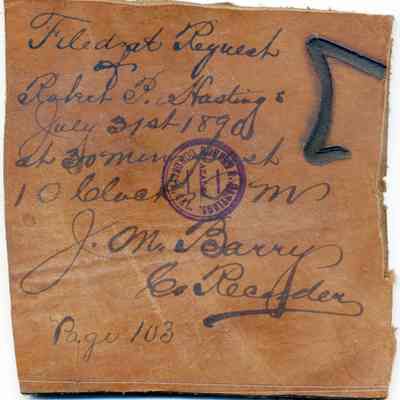 Filed at Request
of
Robert P. Hastings
July 31st 1890
at 30 min past
1 O'Clock M
J. M. Barry
Co Recorder
Page 103